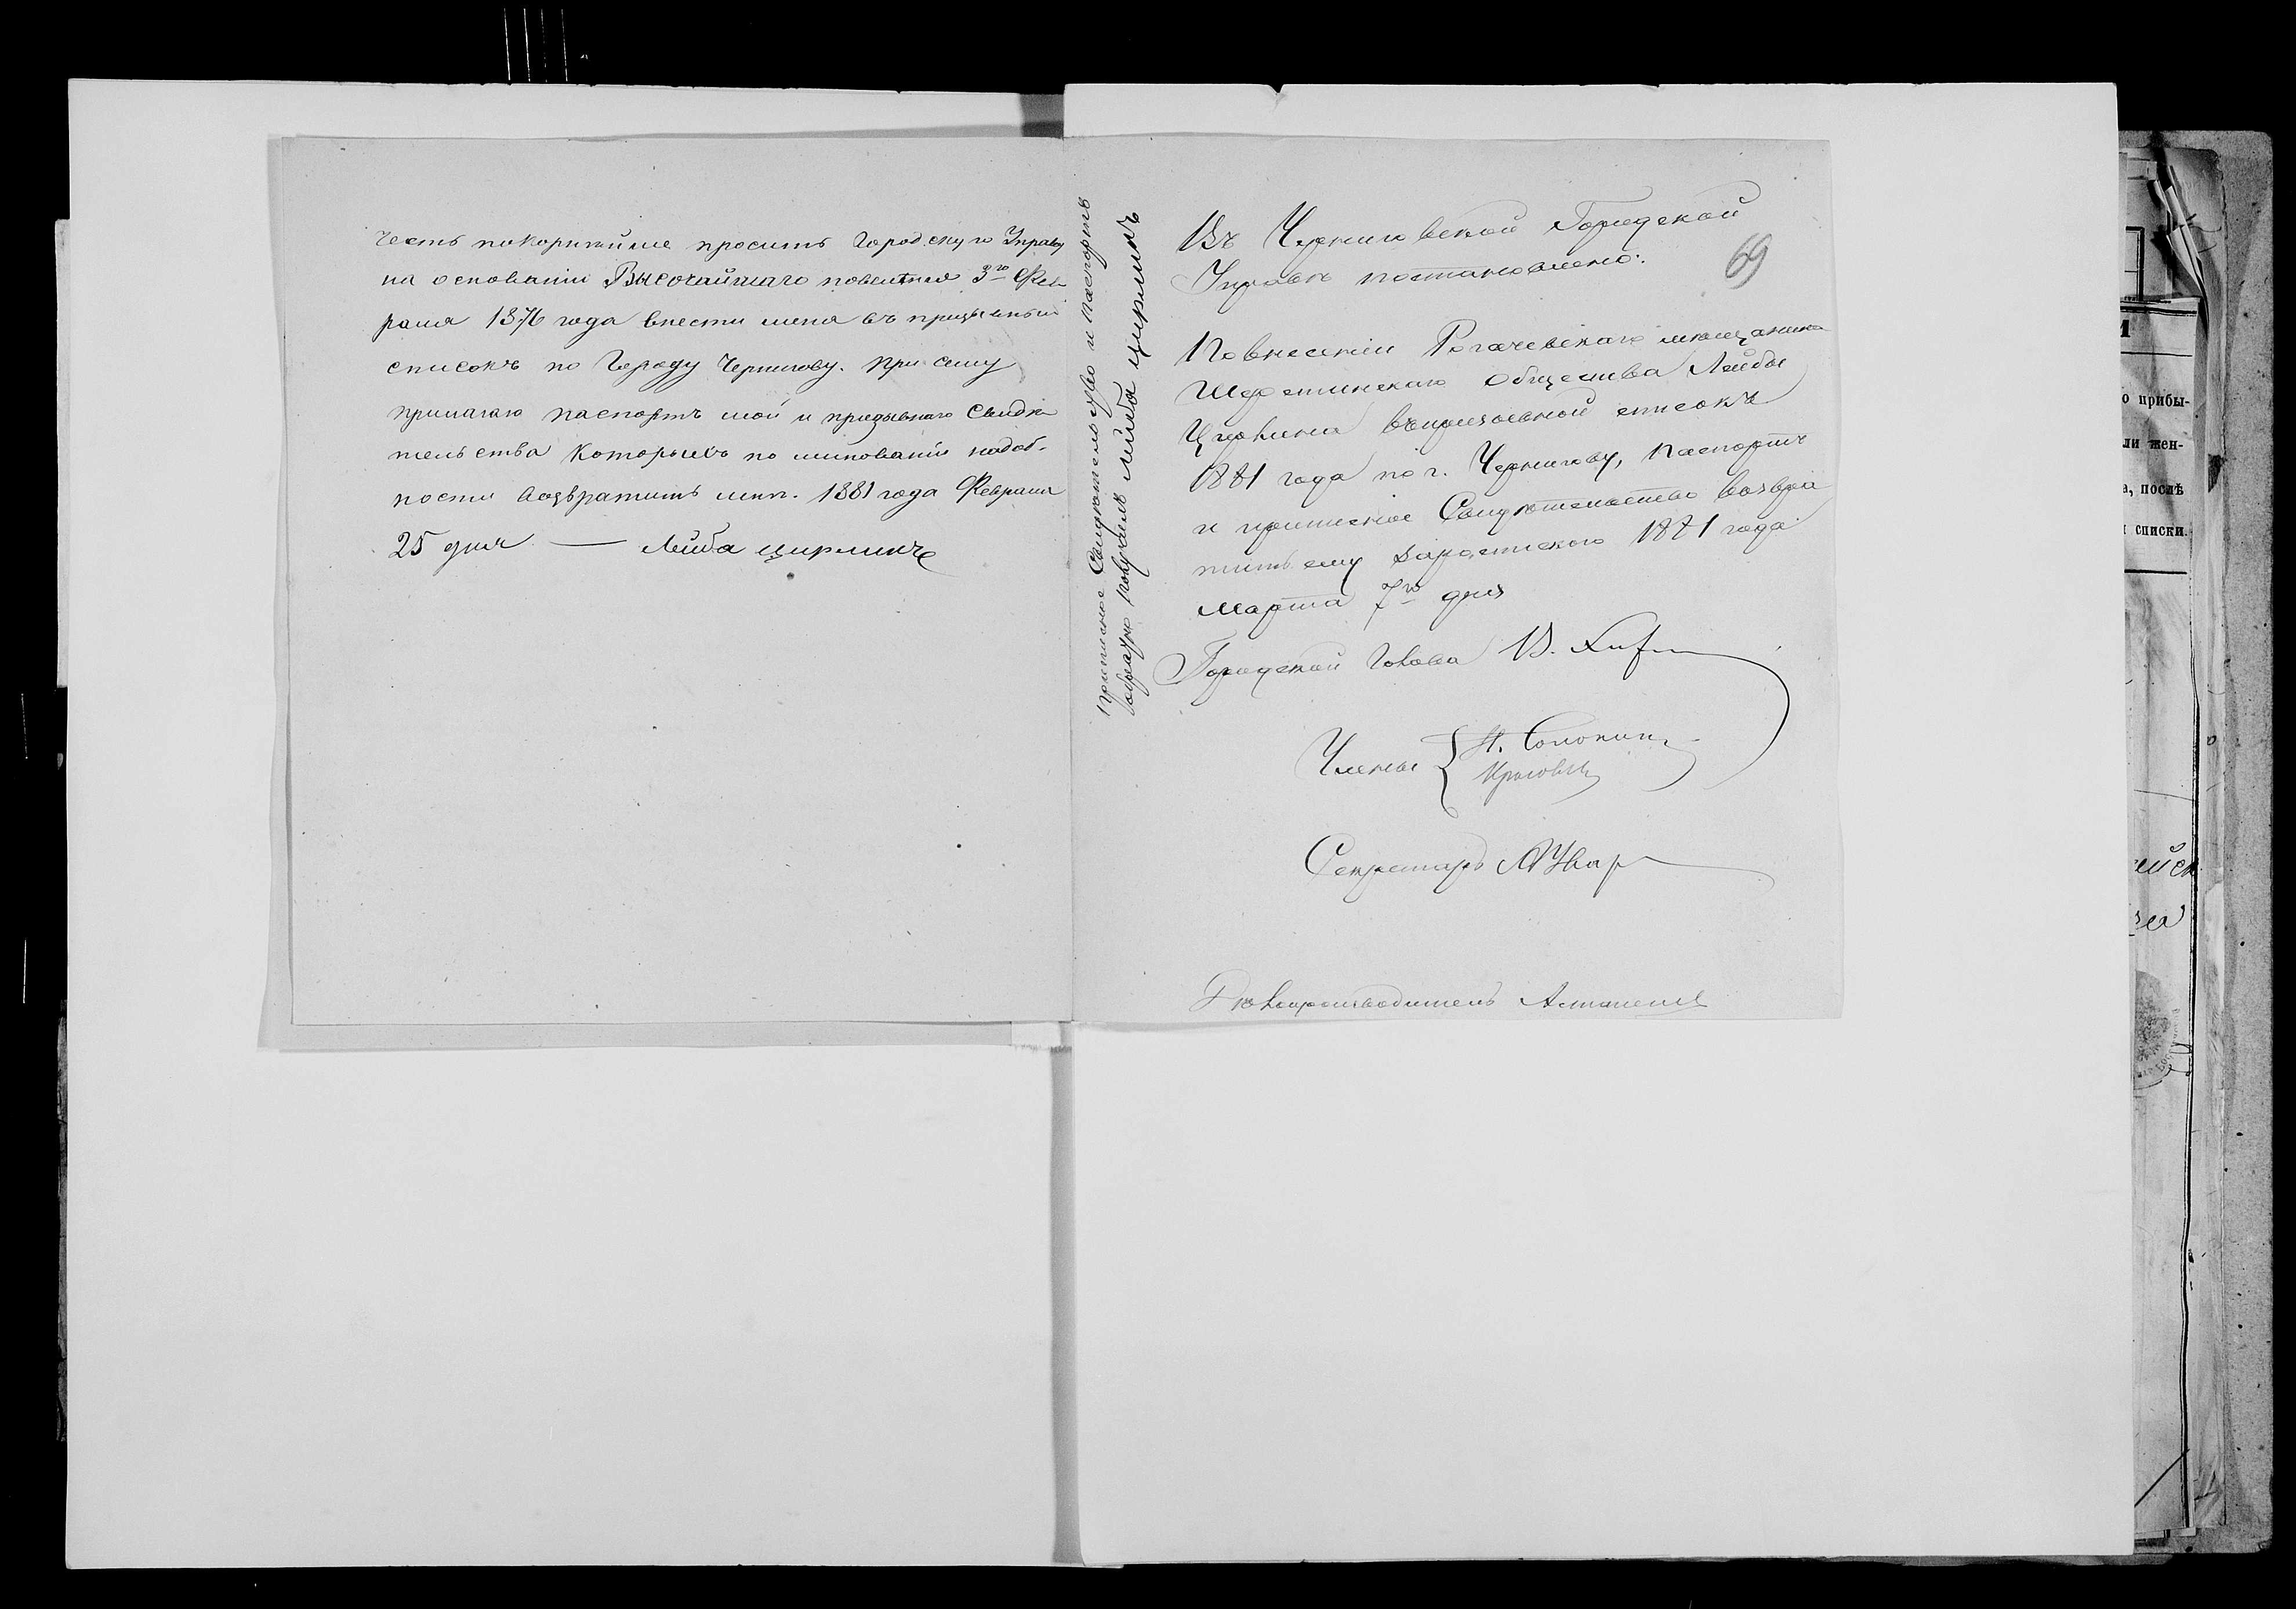 честь покорнѣйше просить Городскую Управу
на основаніи Высочайшаго повелѣнія 3го Фев
раля 1876 года внести меня въ призывный
списокъ по Городу Чернигову. При семъ
прилагаю паспортъ мой и призывнаго Свидѣ
тельства которыхъ по минованіи надоб-
ности возвратить мнѣ. 1881 года Февраля
25 дня — Лейба Цирлинъ
Приписное Свидѣтельство и паспортъ
обратно получилъ Лейба Цирлинъ
69
Въ Черниговской Городской
Управѣ постановлено:
По внесеніи Рогачевскаго мѣщанина
общества Лейбы
Цирлина въ призывной списокъ
1881 года по г. Чернигову, паспортъ
и приписное Свидѣтельство возвра
тить ему 1881 года
Марта 7го дня
Городской Голова В.
Члены
Секретарь
Дѣлопроизводитель
о прибы-
ли жен-
а, послѣ
списки.